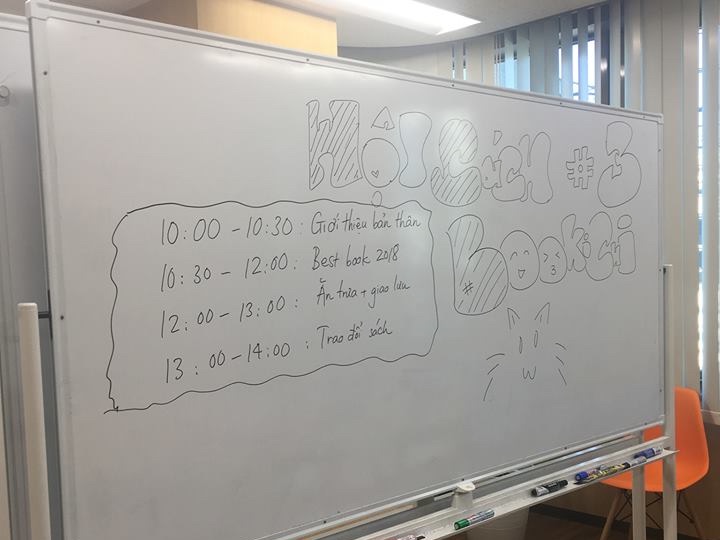 HỘI SÁCH #3
bookiChi
10:00 - 10:30 : Giới thiệu bản thân
10:30 - 12:00 : Best book 2018
12:00 - 13:00 : Ăn trưa + giao lưu
13:00 - 14:00 : Trao đổi sách